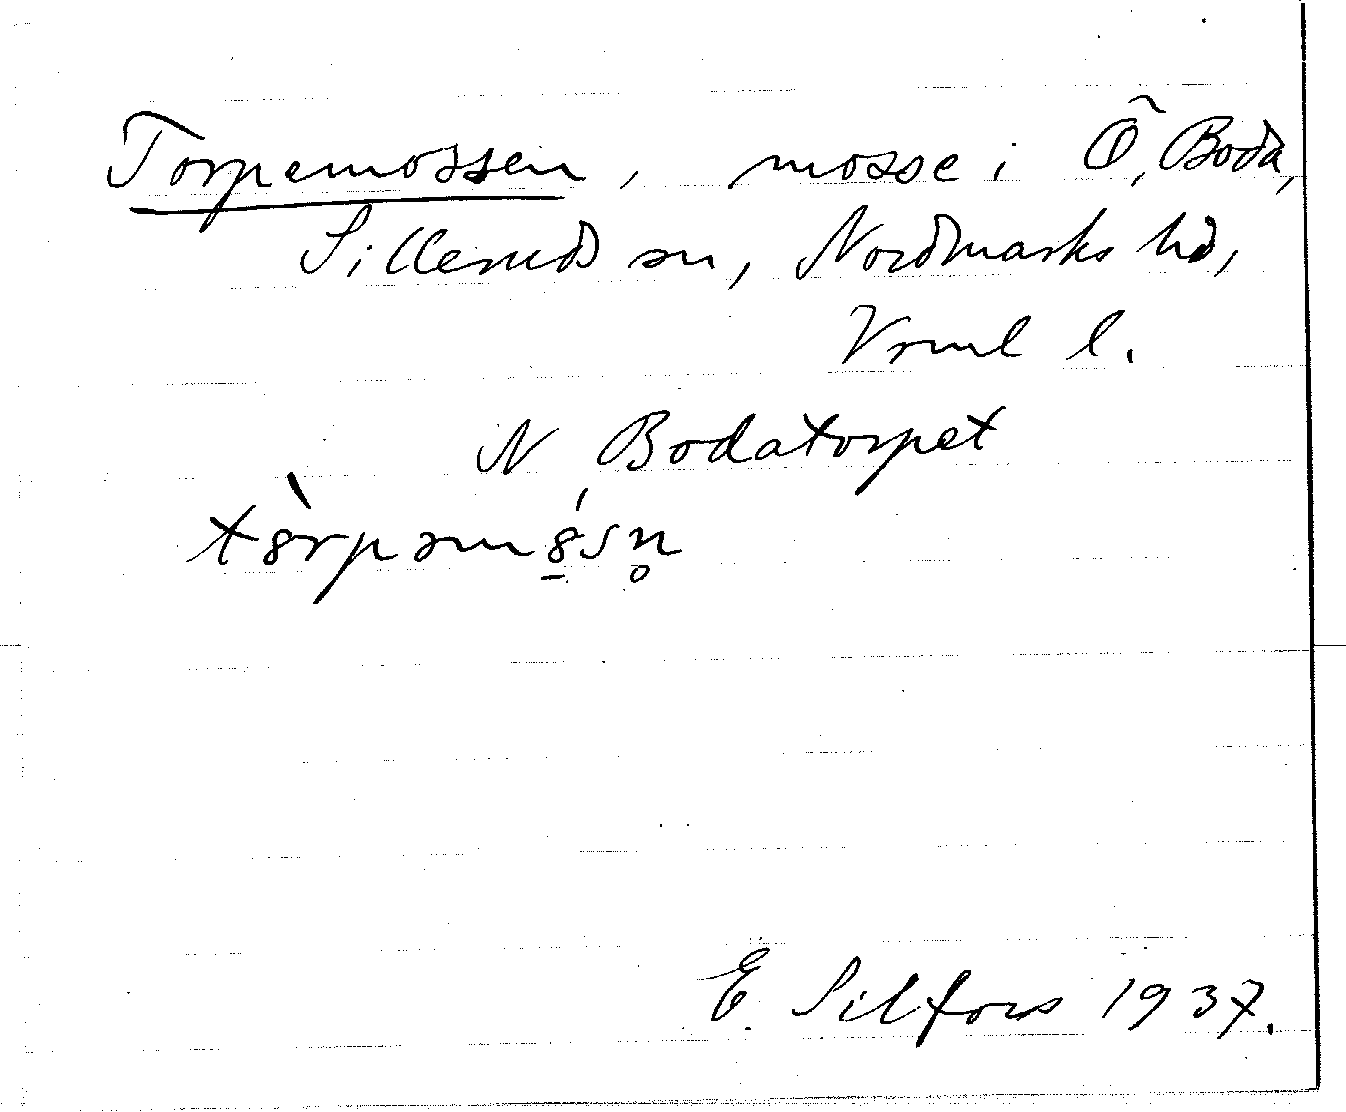 Torpemossen, mosse i Ö, Boda,
Silleruds sn, Nordmarks hd,
Vrml l.
N Bodatorpet
E. Silfors 1937.